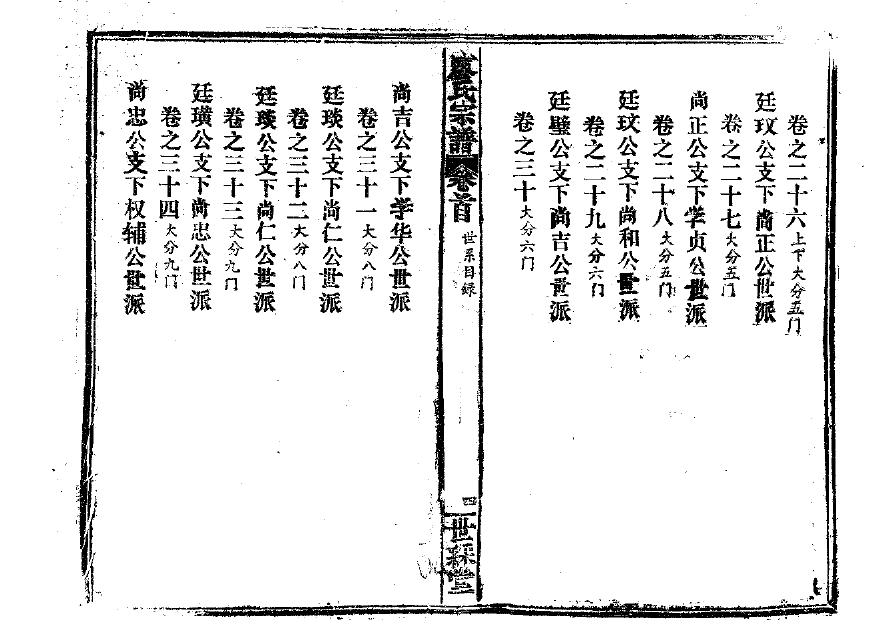 卷之二十六上下大分五门
廷玟公支下尚正公世派
卷之二十七大分五门
尚正公支下学贞公世派
卷之二十八大分五门
廷玟公支下尚和公世派
卷之二十九大分六门
廷璧公支下尚吉公世派
卷之三十大分六门
廖氏宗譜 卷首 世系目録 四 世綵堂
尚吉公支下学华公世派
卷之三十一大分八门
廷琰公支下尚仁公世派
卷之三十二大分八门
廷琰公支下尚仁公世派
卷之三十三大分九门
廷璜公支下尚忠公世派
卷之三十四大分九门
尚忠公支下权辅公世派